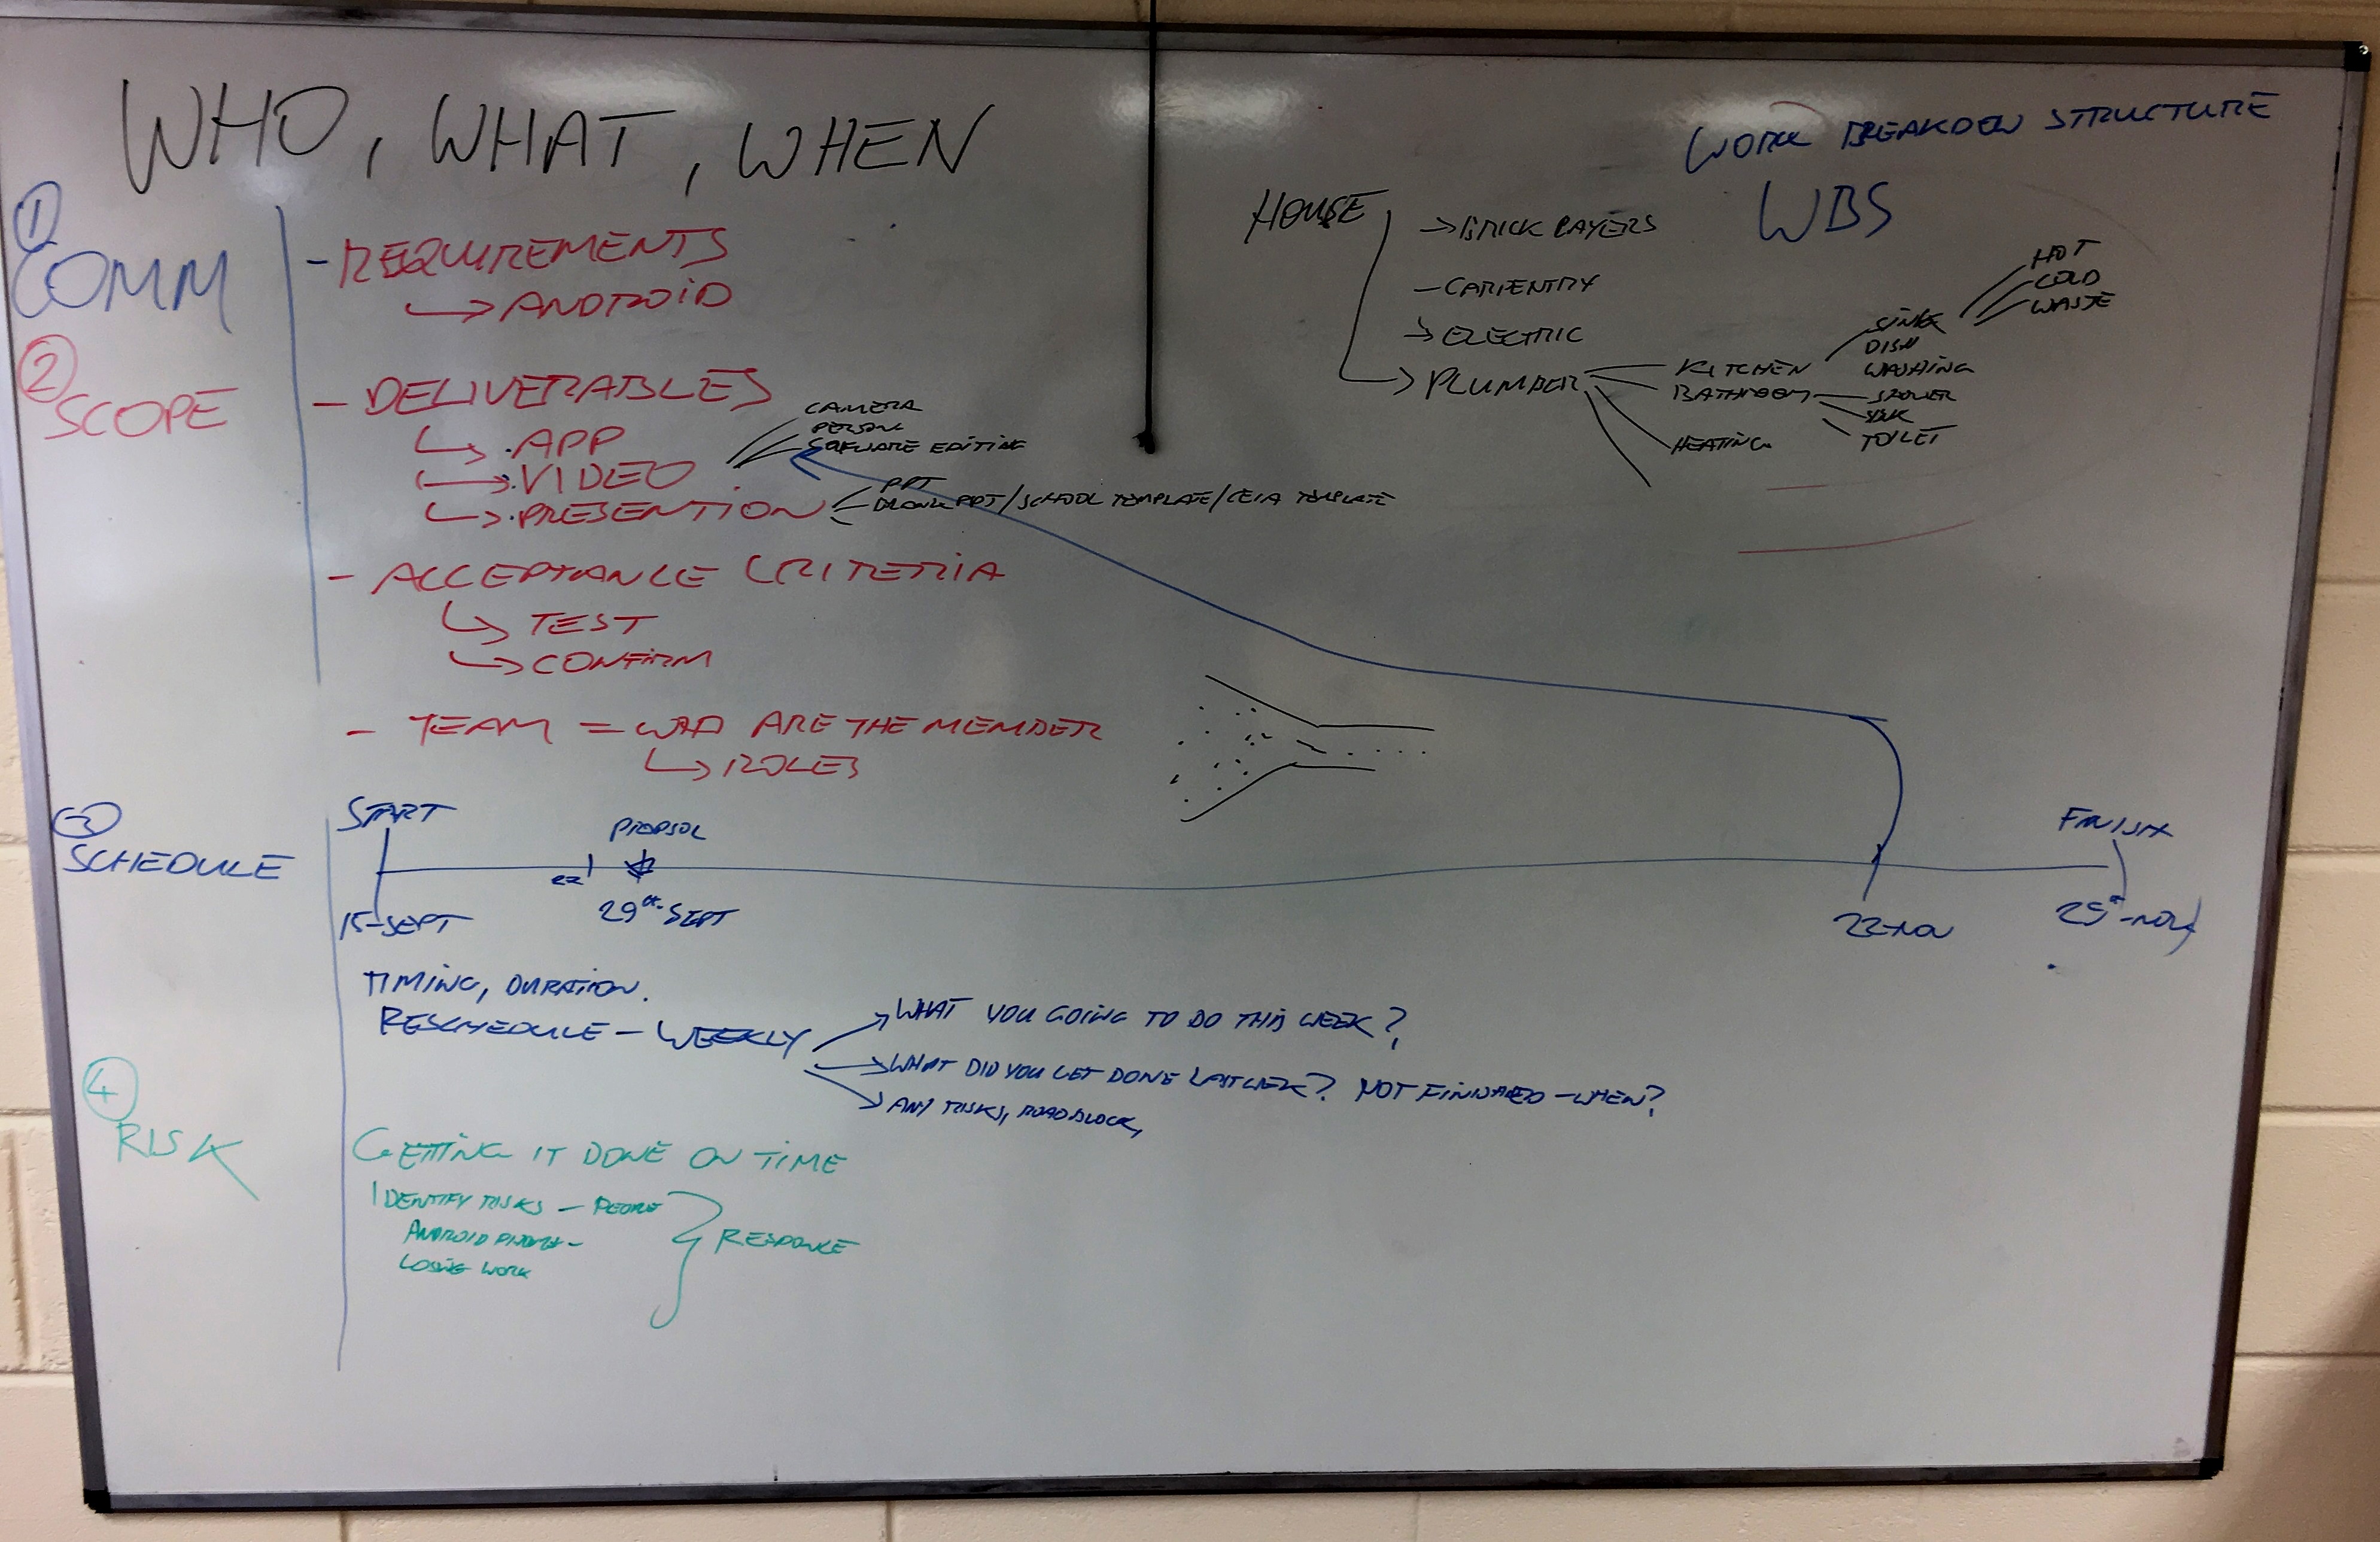 WHO, WHAT, WHEN
① COMM
- REQUIREMENTS
ANDROID
② SCOPE
- DELIVERABLES
. APP
. VIDEO
CAMERA
PERSON
SOFWARE EDITING
. PRESENTION
PPT
PPT/SCHOOL TEMPLATE/CEIA TEMPLATE
- ACCEPTANCE CRITERIA
TEST
CONFIRM
- TEAM = WHO ARE THE MEMBER
ROLES
WORK BREAKDOW STRUCTURE
WBS
HOUSE
BRICK LAYERS
- CARPENTRY
ELECTRIC
PLUMBER
KITCHEN
SINK
HOT
COLD
WASTE
DISH
WASHING
BATHROOM
SHOWER
SINK
TOILET
HEATING
③ SCHEDULE
START
15-SEPT
22
PROPSOL
29th SEPT
22-NOV
FINISH
25th-NOV
TIMING, DURATION.
RESCHEDULE - WEEKLY
WHAT YOU GOING TO DO THIS WEEK?
WHAT DID YOU GET DONE LAST WEEK? NOT FINISHED - WHEN?
ANY RISKS, ROADBLOCK,
④ RISK
GETTING IT DONE ON TIME
IDENTIFY RISKS - PEOPLE
ANDROID PHONE -
LOSING WORK
RESPONCE